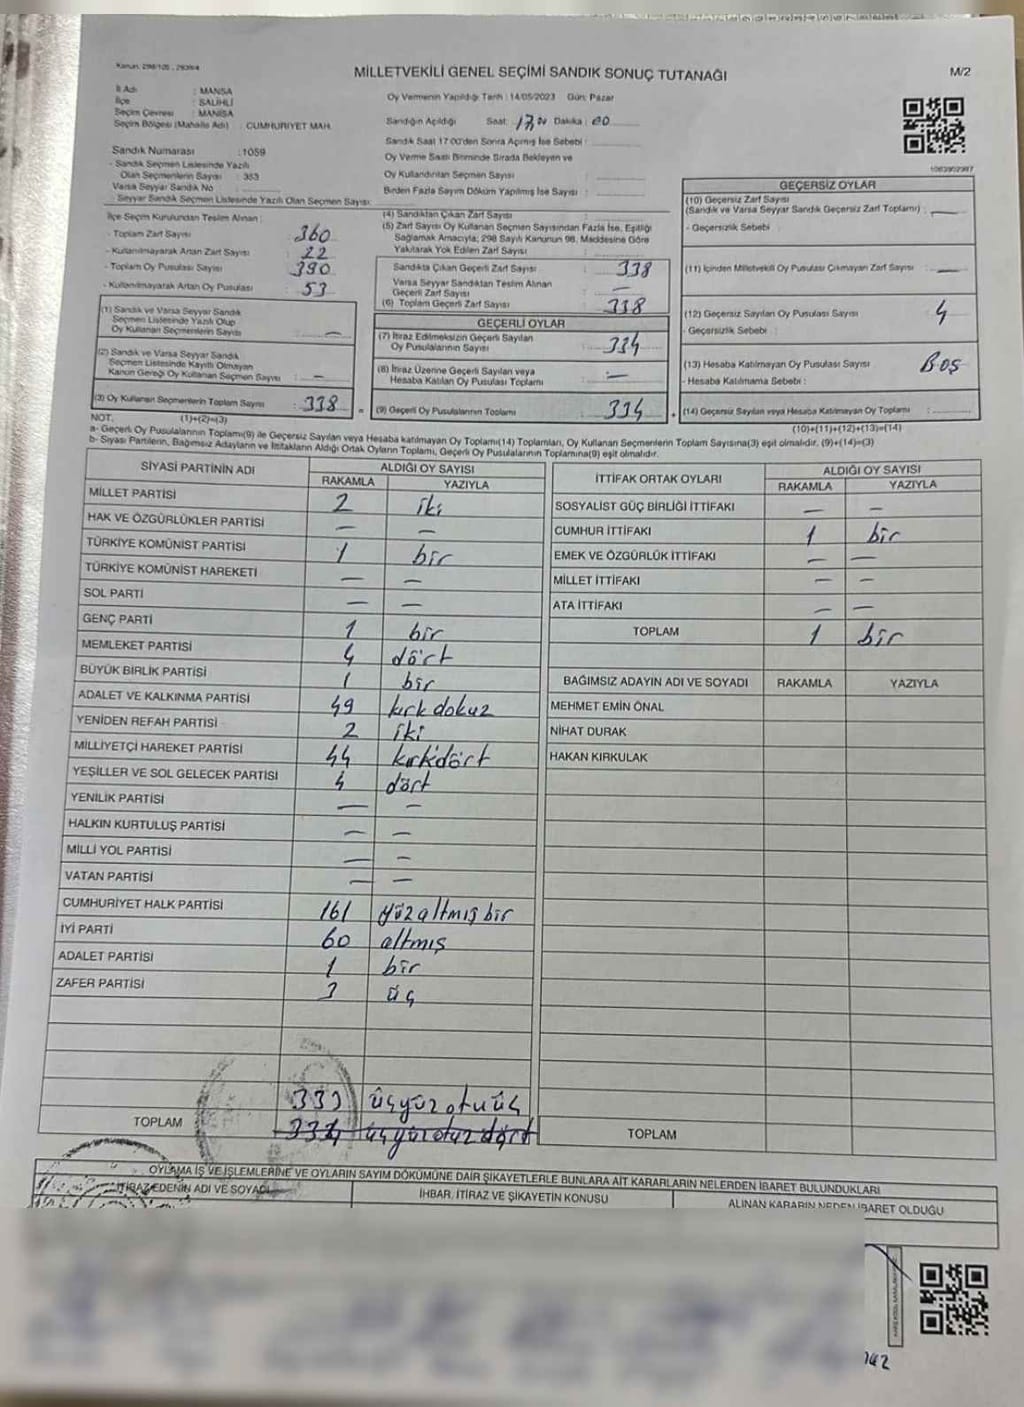 Kanun: 298/105, 2839/4
MİLLETVEKİLİ GENEL SEÇİMİ SANDIK SONUÇ TUTANAĞI
M/2
İl Adı : MANİSA
İlçe : SALİHLİ
Seçim Çevresi : MANİSA
Seçim Bölgesi (Mahalle Adı) : CUMHURİYET MAH.
Oy Vermenin Yapıldığı Tarih : 14/05/2023 Gün: Pazar
Sandığın Açıldığı Saat: 17,00 Dakika : 00
Sandık Saat 17:00'den Sonra Açılmış İse Sebebi :
Oy Verme Saati Bitiminde Sırada Bekleyen ve
Oy Kullandırılan Seçmen Sayısı :
Birden Fazla Sayım Döküm Yapılmış İse Sayısı :
Sandık Numarası : 1059
- Sandık Seçmen Listesinde Yazılı
Olan Seçmenlerin Sayısı : 353
Varsa Seyyar Sandık No :
- Seyyar Sandık Seçmen Listesinde Yazılı Olan Seçmen Sayısı:
İlçe Seçim Kurulundan Teslim Alınan :
- Toplam Zarf Sayısı : 360
- Kullanılmayarak Artan Zarf Sayısı : 22
- Toplam Oy Pusulası Sayısı : 390
- Kullanılmayarak Artan Oy Pusulası : 53
(1) Sandık ve Varsa Seyyar Sandık
Seçmen Listesinde Yazılı Olup
Oy Kullanan Seçmenlerin Sayısı : —
(2) Sandık ve Varsa Seyyar Sandık
Seçmen Listesinde Kayıtlı Olmayan
Kanun Gereği Oy Kullanan Seçmen Sayısı : —
(3) Oy Kullanan Seçmenlerin Toplam Sayısı : 338 =
(1)+(2)=(3)
(4) Sandıktan Çıkan Zarf Sayısı :
(5) Zarf Sayısı Oy Kullanan Seçmen Sayısından Fazla İse, Eşitliği
Sağlamak Amacıyla; 298 Sayılı Kanunun 98. Maddesine Göre
Yakılarak Yok Edilen Zarf Sayısı :
Sandıkta Çıkan Geçerli Zarf Sayısı : 338
Varsa Seyyar Sandıktan Teslim Alınan
Geçerli Zarf Sayısı : —
(6) Toplam Geçerli Zarf Sayısı : 338
GEÇERLİ OYLAR
(7) İtiraz Edilmeksizin Geçerli Sayılan
Oy Pusulalarının Sayısı : 334
(8) İtiraz Üzerine Geçerli Sayılan veya
Hesaba Katılan Oy Pusulası Toplamı : —
(9) Geçerli Oy Pusulalarının Toplamı : 334 +
GEÇERSİZ OYLAR
(10) Geçersiz Zarf Sayısı
(Sandık ve Varsa Seyyar Sandık Geçersiz Zarf Toplamı) : —
- Geçersizlik Sebebi :
(11) İçinden Milletvekili Oy Pusulası Çıkmayan Zarf Sayısı : —
(12) Geçersiz Sayılan Oy Pusulası Sayısı : 4
- Geçersizlik Sebebi :
(13) Hesaba Katılmayan Oy Pusulası Sayısı : BOŞ
- Hesaba Katılmama Sebebi :
(14) Geçersiz Sayılan veya Hesaba Katılmayan Oy Toplamı :
(10)+(11)+(12)+(13)=(14)
NOT:
a- Geçerli Oy Pusulalarının Toplamı(9) ile Geçersiz Sayılan veya Hesaba katılmayan Oy Toplamı(14) Toplamları, Oy Kullanan Seçmenlerin Toplam Sayısına(3) eşit olmalıdır. (9)+(14)=(3)
b- Siyasi Partilerin, Bağımsız Adayların ve İttifakların Aldığı Ortak Oyların Toplamı, Geçerli Oy Pusulalarının Toplamına(9) eşit olmalıdır.
SİYASİ PARTİNİN ADI ALDIĞI OY SAYISI
RAKAMLA YAZIYLA
MİLLET PARTİSİ 2 iki
HAK VE ÖZGÜRLÜKLER PARTİSİ — —
TÜRKİYE KOMÜNİST PARTİSİ 1 bir
TÜRKİYE KOMÜNİST HAREKETİ — —
SOL PARTİ — —
GENÇ PARTİ 1 bir
MEMLEKET PARTİSİ 4 dört
BÜYÜK BİRLİK PARTİSİ 1 bir
ADALET VE KALKINMA PARTİSİ 49 kırkdokuz
YENİDEN REFAH PARTİSİ 2 iki
MİLLİYETÇİ HAREKET PARTİSİ 44 kırkdört
YEŞİLLER VE SOL GELECEK PARTİSİ 4 dört
YENİLİK PARTİSİ — —
HALKIN KURTULUŞ PARTİSİ — —
MİLLİ YOL PARTİSİ — —
VATAN PARTİSİ — —
CUMHURİYET HALK PARTİSİ 161 yüzaltmışbir
İYİ PARTİ 60 altmış
ADALET PARTİSİ 1 bir
ZAFER PARTİSİ 3 üç
333 üçyüzotuüç
TOPLAM 334 üçyürotuzdört
İTTİFAK ORTAK OYLARI ALDIĞI OY SAYISI
RAKAMLA YAZIYLA
SOSYALİST GÜÇ BİRLİĞİ İTTİFAKI — —
CUMHUR İTTİFAKI 1 bir
EMEK VE ÖZGÜRLÜK İTTİFAKI — —
MİLLET İTTİFAKI — —
ATA İTTİFAKI — —
TOPLAM 1 bir
BAĞIMSIZ ADAYIN ADI VE SOYADI RAKAMLA YAZIYLA
MEHMET EMİN ÖNAL
NİHAT DURAK
HAKAN KIRKULAK
TOPLAM
OYLAMA İŞ VE İŞLEMLERİNE VE OYLARIN SAYIM DÖKÜMÜNE DAİR ŞİKAYETLERLE BUNLARA AİT KARARLARIN NELERDEN İBARET BULUNDUKLARI
İTİRAZ EDENİN ADI VE SOYADI
İHBAR, İTİRAZ VE ŞİKAYETİN KONUSU
ALINAN KARARIN NEDEN İBARET OLDUĞU